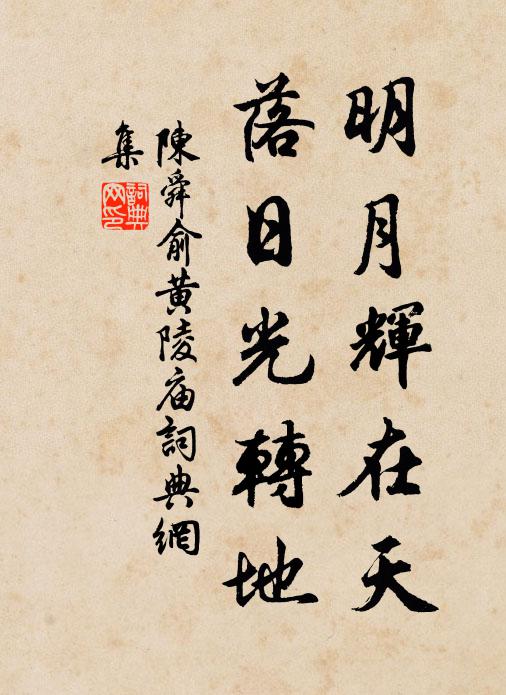 明月輝在天
落日光轉地
陳舜俞黄陵庙詞典網
集
詞典
网印